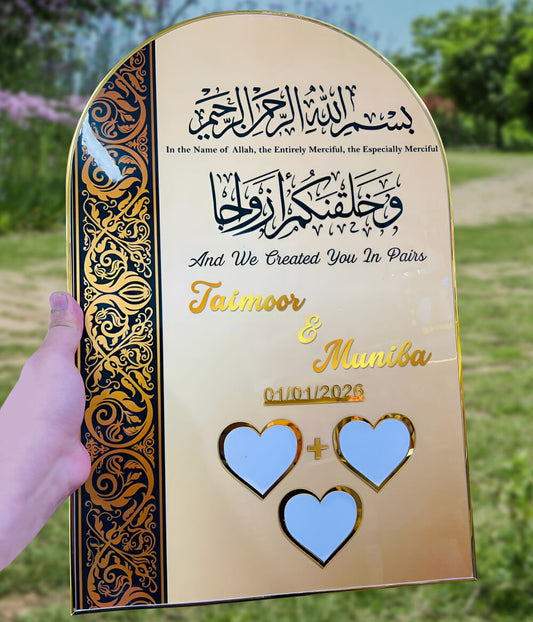 بسم الله الرحمن الرحيم
In the Name of Allah, the Entirely Merciful, the Especially Merciful
وخلقنكم أزواجا
And We Created You In Pairs
Taimoor
&
Muniba
01/01/2026
+